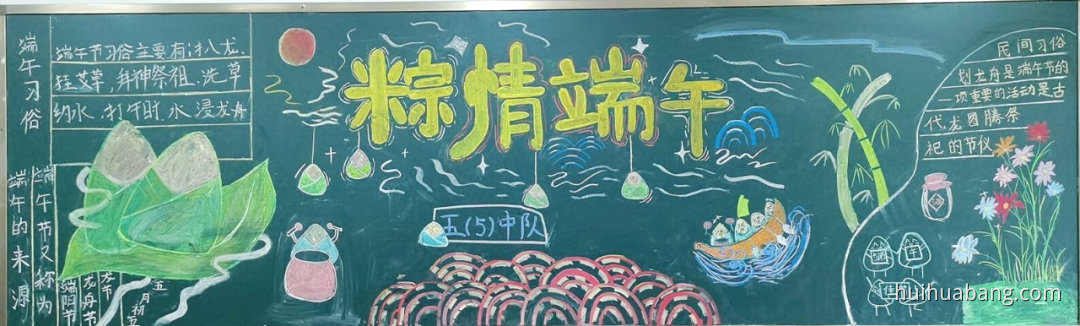 粽情端午
五(5)中队
端午习俗
端午节习俗主要有:扒龙、
挂艾草、拜神祭祖、洗草
纳水、打午时水、浸龙舟
端午的来源
端午节又称为
端阳节
龙舟节
五月初五
民间习俗
划龙舟是端午节的
一项重要的活动是古
代龙图腾祭
祀的节仪
huihuabang.com